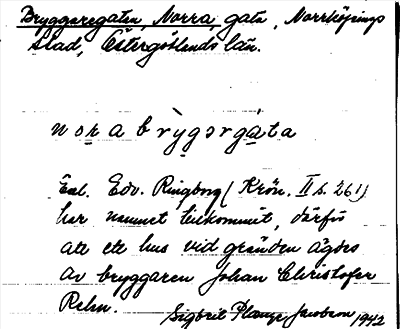 Bryggaregatan, Norra, gata, Norrköpings
stad, Östergötlands län.
norabrygərgata
Enl. Edv. Ringborg (Krön. II s. 261)
har namnet tillkommit, därför
att ett hus vid gränden ägdes
av bryggaren Johan Christofer
Rehn.
Sigbrit Plænge Jacobson 1942